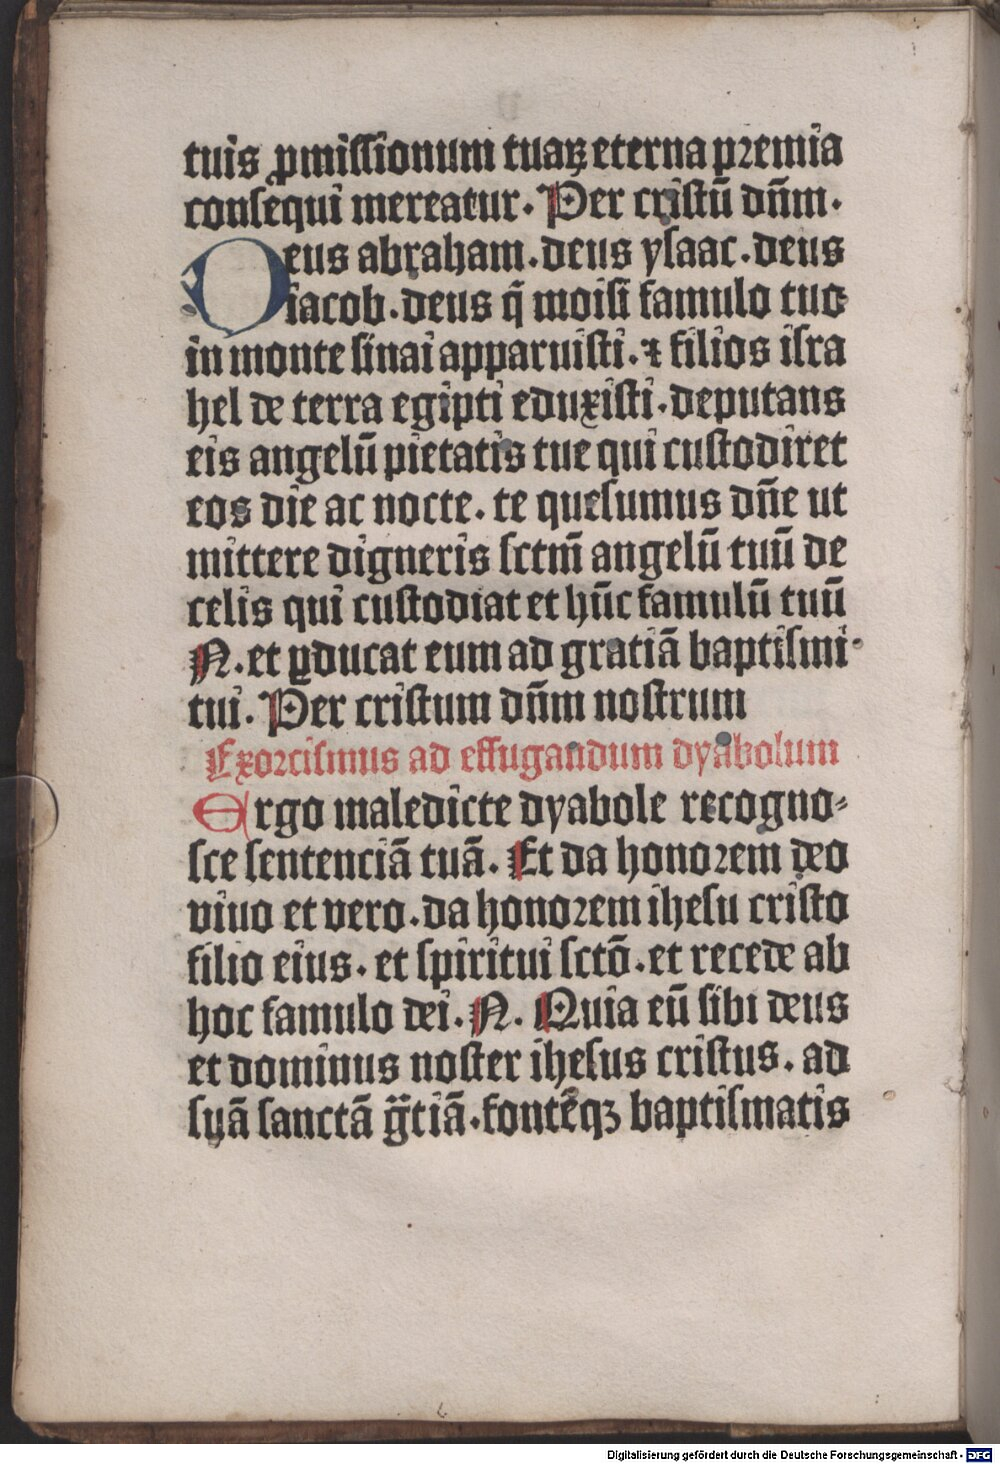 tuis ꝓmissionum tuaꝝ eterna premia
consequi mereatur. Per cristū dn̄m.
Deus abraham. deus ysaac. deus
iacob. deus q̄ moisi famulo tuo
in monte sinai apparuisti. ⁊ filios isra
hel de terra egipti eduxisti. deputans
eis angelū pietatis tue qui custodiret
eos die ac nocte. te quesumus dn̄e ut
mittere digneris sctm̄ angelū tuū de
celis qui custodiat et hūc famulū tuū
N. et ꝑducat eum ad gratiā baptismi
tui. Per cristum dn̄m nostrum
Exorcismus ad effugandum dyabolum
Ergo maledicte dyabole recogno-
sce sentenciā tuā. Et da honorem deo
viuo et vero. da honorem ihesu cristo
filio eius. et spiritui sctō. et recede ab
hoc famulo dei. N. Quia eū sibi deus
et dominus noster ihesus cristus. ad
suā sanctā gr̄tiā. fontēqꝫ baptismatis
Digitalisierung gefördert durch die Deutsche Forschungsgemeinschaft - DFG